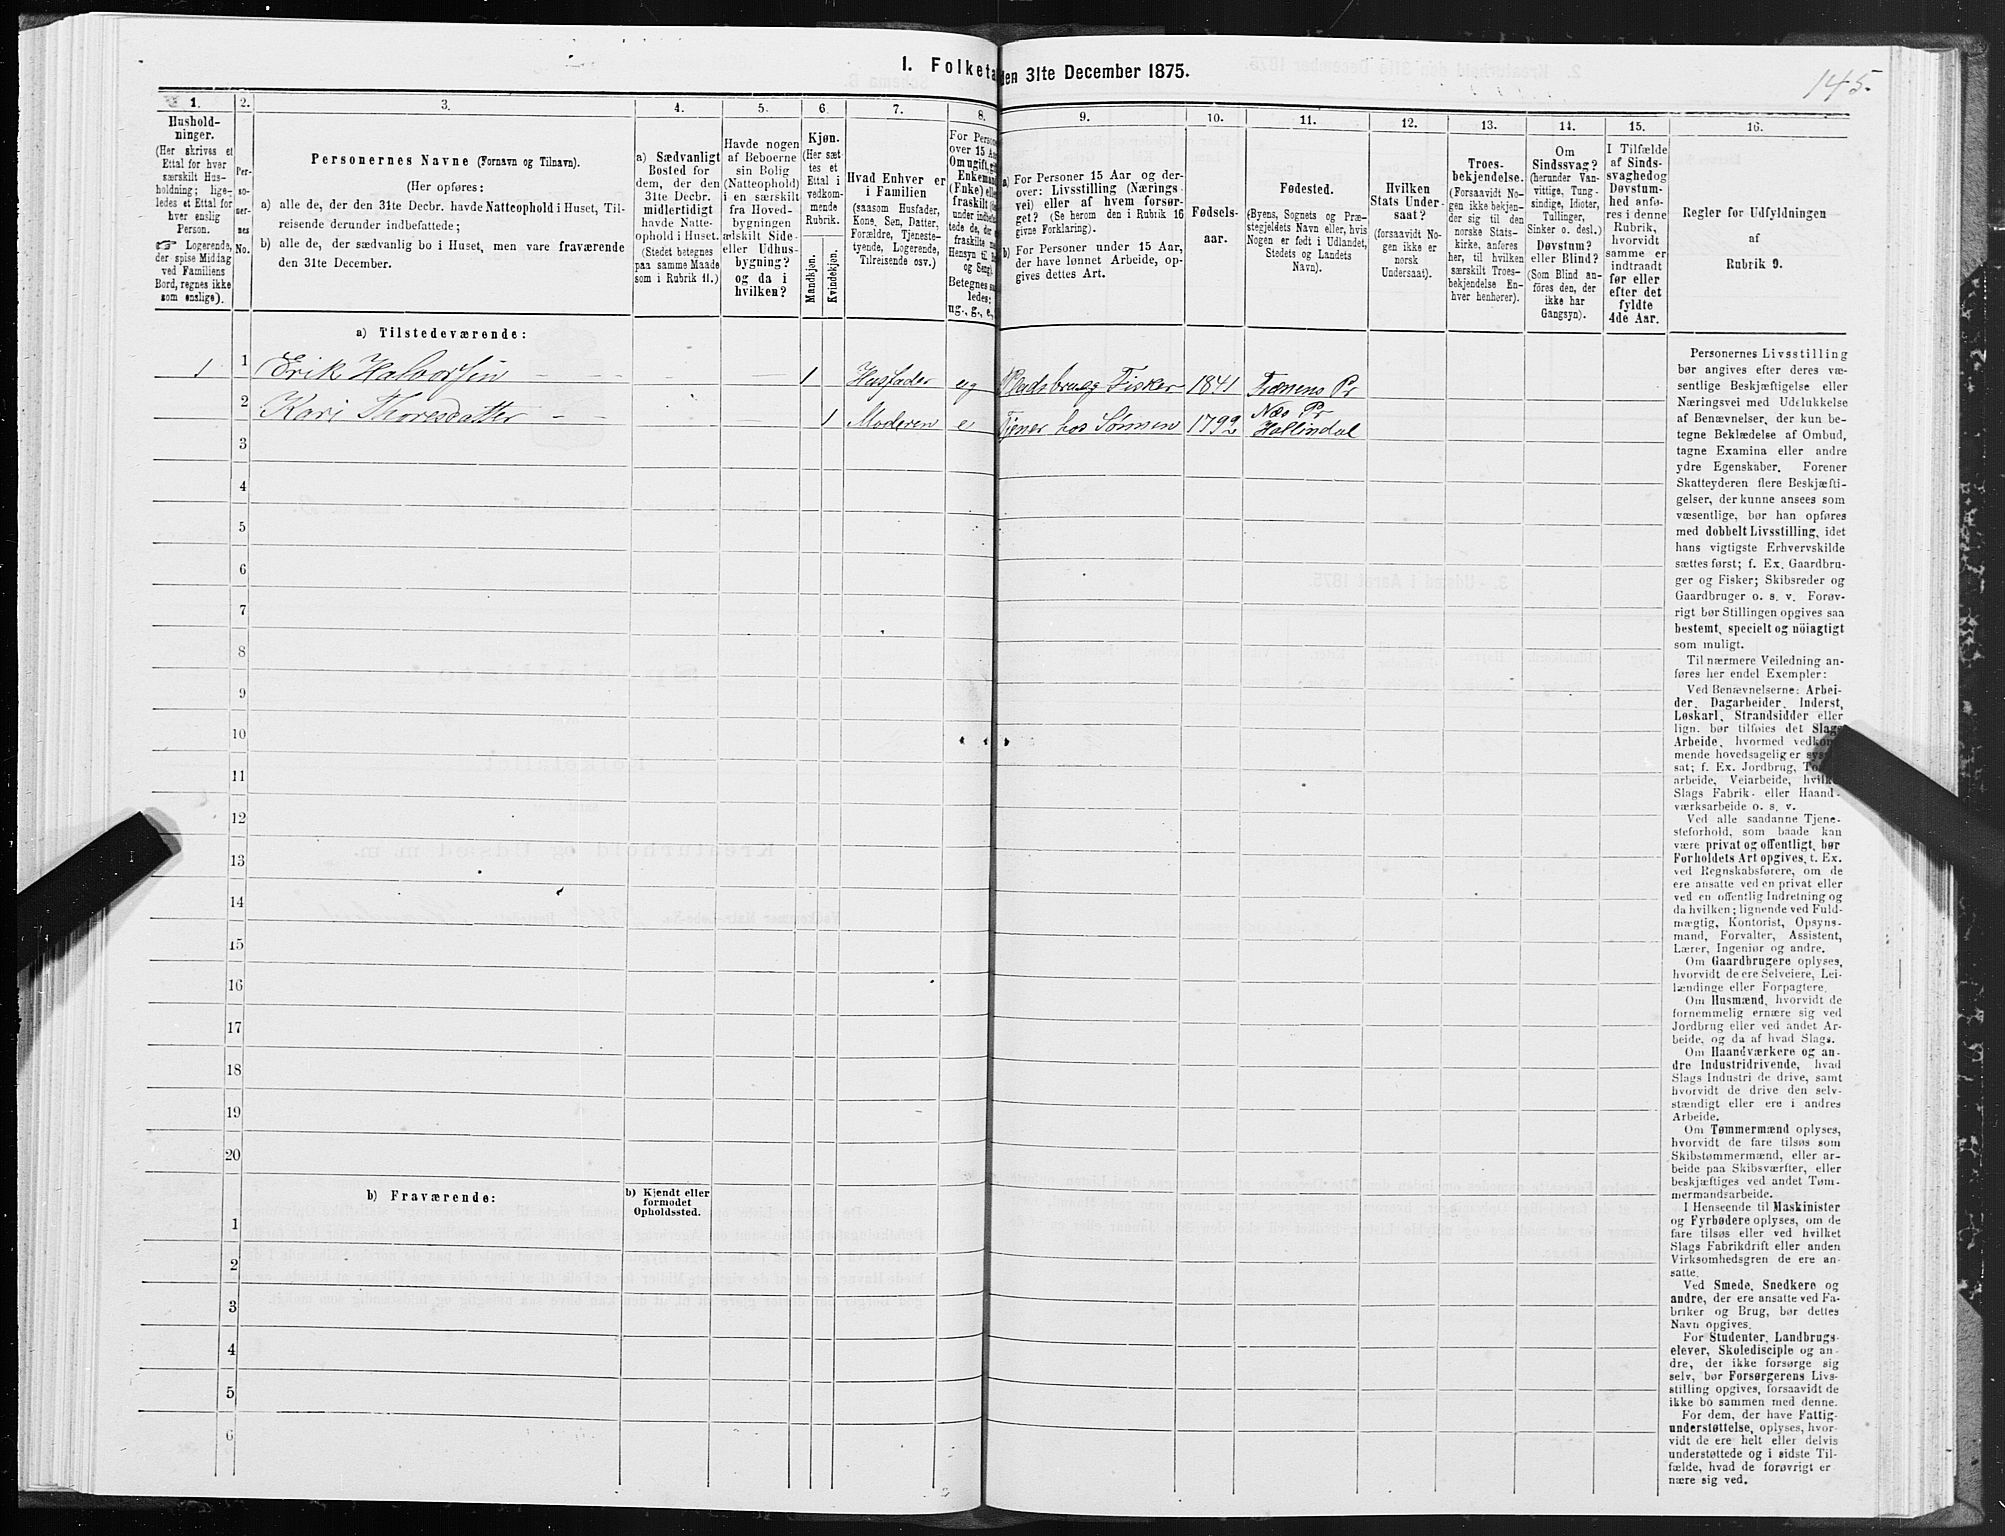 I. Folketa
den 31te December 1875.
145.
1.
2.
3.
4.
5.
6.
7.
8.
9.
10.
11.
12.
13.
14.
15.
16.
Hushold-
ninger.
(Her skrives et
Ettal for hver
særskilt Hus-
holdning; lige-
ledes et Ettal for
hver enslig
Person.
☞ Logerende,
der spise Middag
ved Familiens
Bord, regnes ikke
som enslige).
Per-
so-
ner-
nes
No.
Personernes Navne (Fornavn og Tilnavn).
(Her opføres:
a) alle de, der den 31te Decbr. havde Natteophold i Huset, Til-
reisende derunder indbefattede;
b) alle de, der sædvanlig bo i Huset, men vare fraværende
den 31te December.
a) Sædvanligt
Bosted for
dem, der den
31te Decbr.
midlertidigt
havde Natte-
ophold i Huset.
(Stedet betegnes
paa samme Maade
som i Rubrik 11.)
Havde nogen
af Beboerne
sin Bolig
(Natteophold)
i en særskilt
fra Hoved-
bygningen
adskilt Side-
eller Udhus-
bygning?
og da i
hvilken?
Kjøn.
(Her sæt
tes et
Ettal i
vedkom-
mende
Rubrik.
Mandkjøn.
Kvindekjøn.
Hvad Enhver er
i Familien
(saasom Husfader,
Kone, Søn, Datter,
Forældre, Tjeneste-
tyende, Logerende,
Tilreisende osv.)
For Person
over 15 Aa
Om ugift, gif
Enkeman
(Enke) elle
fraskilt (
under indbef
tede de, de
fraskilte
Hensyn til B
og Seng).
Betegnes
ledes:
ug., g., e.,
a) For Personer 15 Aar og der-
over: Livsstilling (Nærings-
vei) eller af hvem forsør-
get? (Se herom den i Rubrik 16
givne Forklaring).
b) For Personer under 15 Aar,
der have lønnet Arbeide, op-
gives dettes Art.
Fødsels-
aar.
Fødested.
(Byens, Sognets og Præ-
stegjeldets Navn eller, hvis
Nogen er født i Udlandet,
Stedets og Landets
Navn).
Hvilken
Stats Under-
saat?
(forsaavidt No-
gen ikke er
norsk
Undersaat).
Troes-
bekjendelse.
(Forsaavidt No-
gen ikke bekjen-
der sig til den
norske Stats-
kirke, anføres
her, til hvilken
særskilt Troes-
bekjendelse En-
hver henhører).
Om
Sindssvag?
(herunder Van-
vittige, Tung-
sindige, Idioter,
Tullinger,
Sinker o. desl.)
Døvstum?
eller Blind?
(Som Blind an-
føres den, der
ikke har
Gangsyn).
I Tilfælde
af Sinds-
svaghed og
Døvstum-
hed anfø-
res i denne
Rubrik,
hvorvidt
samme er
indtraadt
før eller
efter det
fyldte
4de Aar.
Regler for Udfyldningen
af
Rubrik 9.
a) Tilstedeværende:
1 1 Erik Halvorsen 1 Husfader ug Jordbrug Fisker 1841 Tranens Pr
2 Kari Thoresdatter 1 Moderen e Tjener hos Sønnen 1792 Næs Pr
Hallindal
3
4
5
6
7
8
9
10
11
12
13
14
15
16
17
18
19
20
b) Fraværende:
b) Kjendt eller
formodet
Opholdssted.
1
2
3
4
5
6
Personernes Livsstilling
bør angives efter deres væ-
sentlige Beskjæftigelse eller
Næringsvei med Udelukkelse
af Benævnelser, der kun be-
tegne Beklædelse af Ombud,
tagne Examina eller andre
ydre Egenskaber. Forener
Skatteyderen flere Beskjæfti-
gelser, der kunne ansees som
væsentlige, bør han opføres
med dobbelt Livsstilling, idet
hans vigtigste Erhvervskilde
sættes først; f. Ex. Gaardbru-
ger og Fisker; Skibsreder og
Gaardbruger o. s. v. Forøv-
rigt bør Stillingen opgives saa
bestemt, specielt og nöiagtigt
som muligt.
Til nærmere Veiledning an-
føres her endel Exempler:
Ved Benævnelserne: Arbei-
der, Dagarbeider, Inderst,
Løskarl, Strandsidder eller
lign. bør tilføies det Slags
Arbeide, hvormed vedkom-
mende hovedsagelig er syssel-
sat; f. Ex. Jordbrug, Tom
arbeide, Veiarbeide, hvilket
Slags Fabrik- eller Haand-
værksarbeide o. s. v.
Ved alle saadanne Tjene-
steforhold, som baade kan
være privat og offentligt, bør
Forholdets Art opgives, t. Ex.
ved Regnskabsførere, om de
ere ansatte ved en privat eller
ved en offentlig Indretning og
da hvilken; lignende ved Fuld-
mægtig, Kontorist, Opsyns-
mand, Forvalter, Assistent,
Lærer, Ingeniør og andre.
Om Gaardbrugere oplyses,
hvorvidt de ere Selveiere, Lei-
lændinge eller Forpagtere.
Om Husmænd, hvorvidt de
fornemmelig ernære sig ved
Jordbrug eller ved andet Ar-
beide, og da af hvad Slags.
Om Haandværkere og an-
dre Industridrivende, hvad
Slags Industri de drive, samt
hvorvidt de drive den selv-
stændigt eller ere i andres
Arbeide.
Om Tømmermænd oplyses,
hvorvidt de fare tilsøs som
Skibstømmermænd, eller ar-
beide paa Skibsværfter, eller
beskjæftiges ved andet Tøm-
mermandsarbeide.
I Henseende til Maskinister
og Fyrbødere oplyses, om de
fare tilsøs eller ved hvilket
Slags Fabrikdrift eller anden
Virksomhedsgren de ere an-
satte.
Ved Smede, Snedkere og
andre, der ere ansatte ved Fa-
briker og Brug, bør dettes
Navn opgives.
For Studenter, Landbrugs-
elever, Skoledisciple og an-
dre, der ikke forsørge sig
selv, bør Forsørgerens Livs-
stilling opgives, forsaavidt de
ikke bo sammen med denne.
For dem, der have Fattig-
understøttelse, oplyses, hvor-
vidt de ere helt eller delvis
understøttede og i sidste Til-
fælde, hvad de forøvrigt er
nære sig ved.